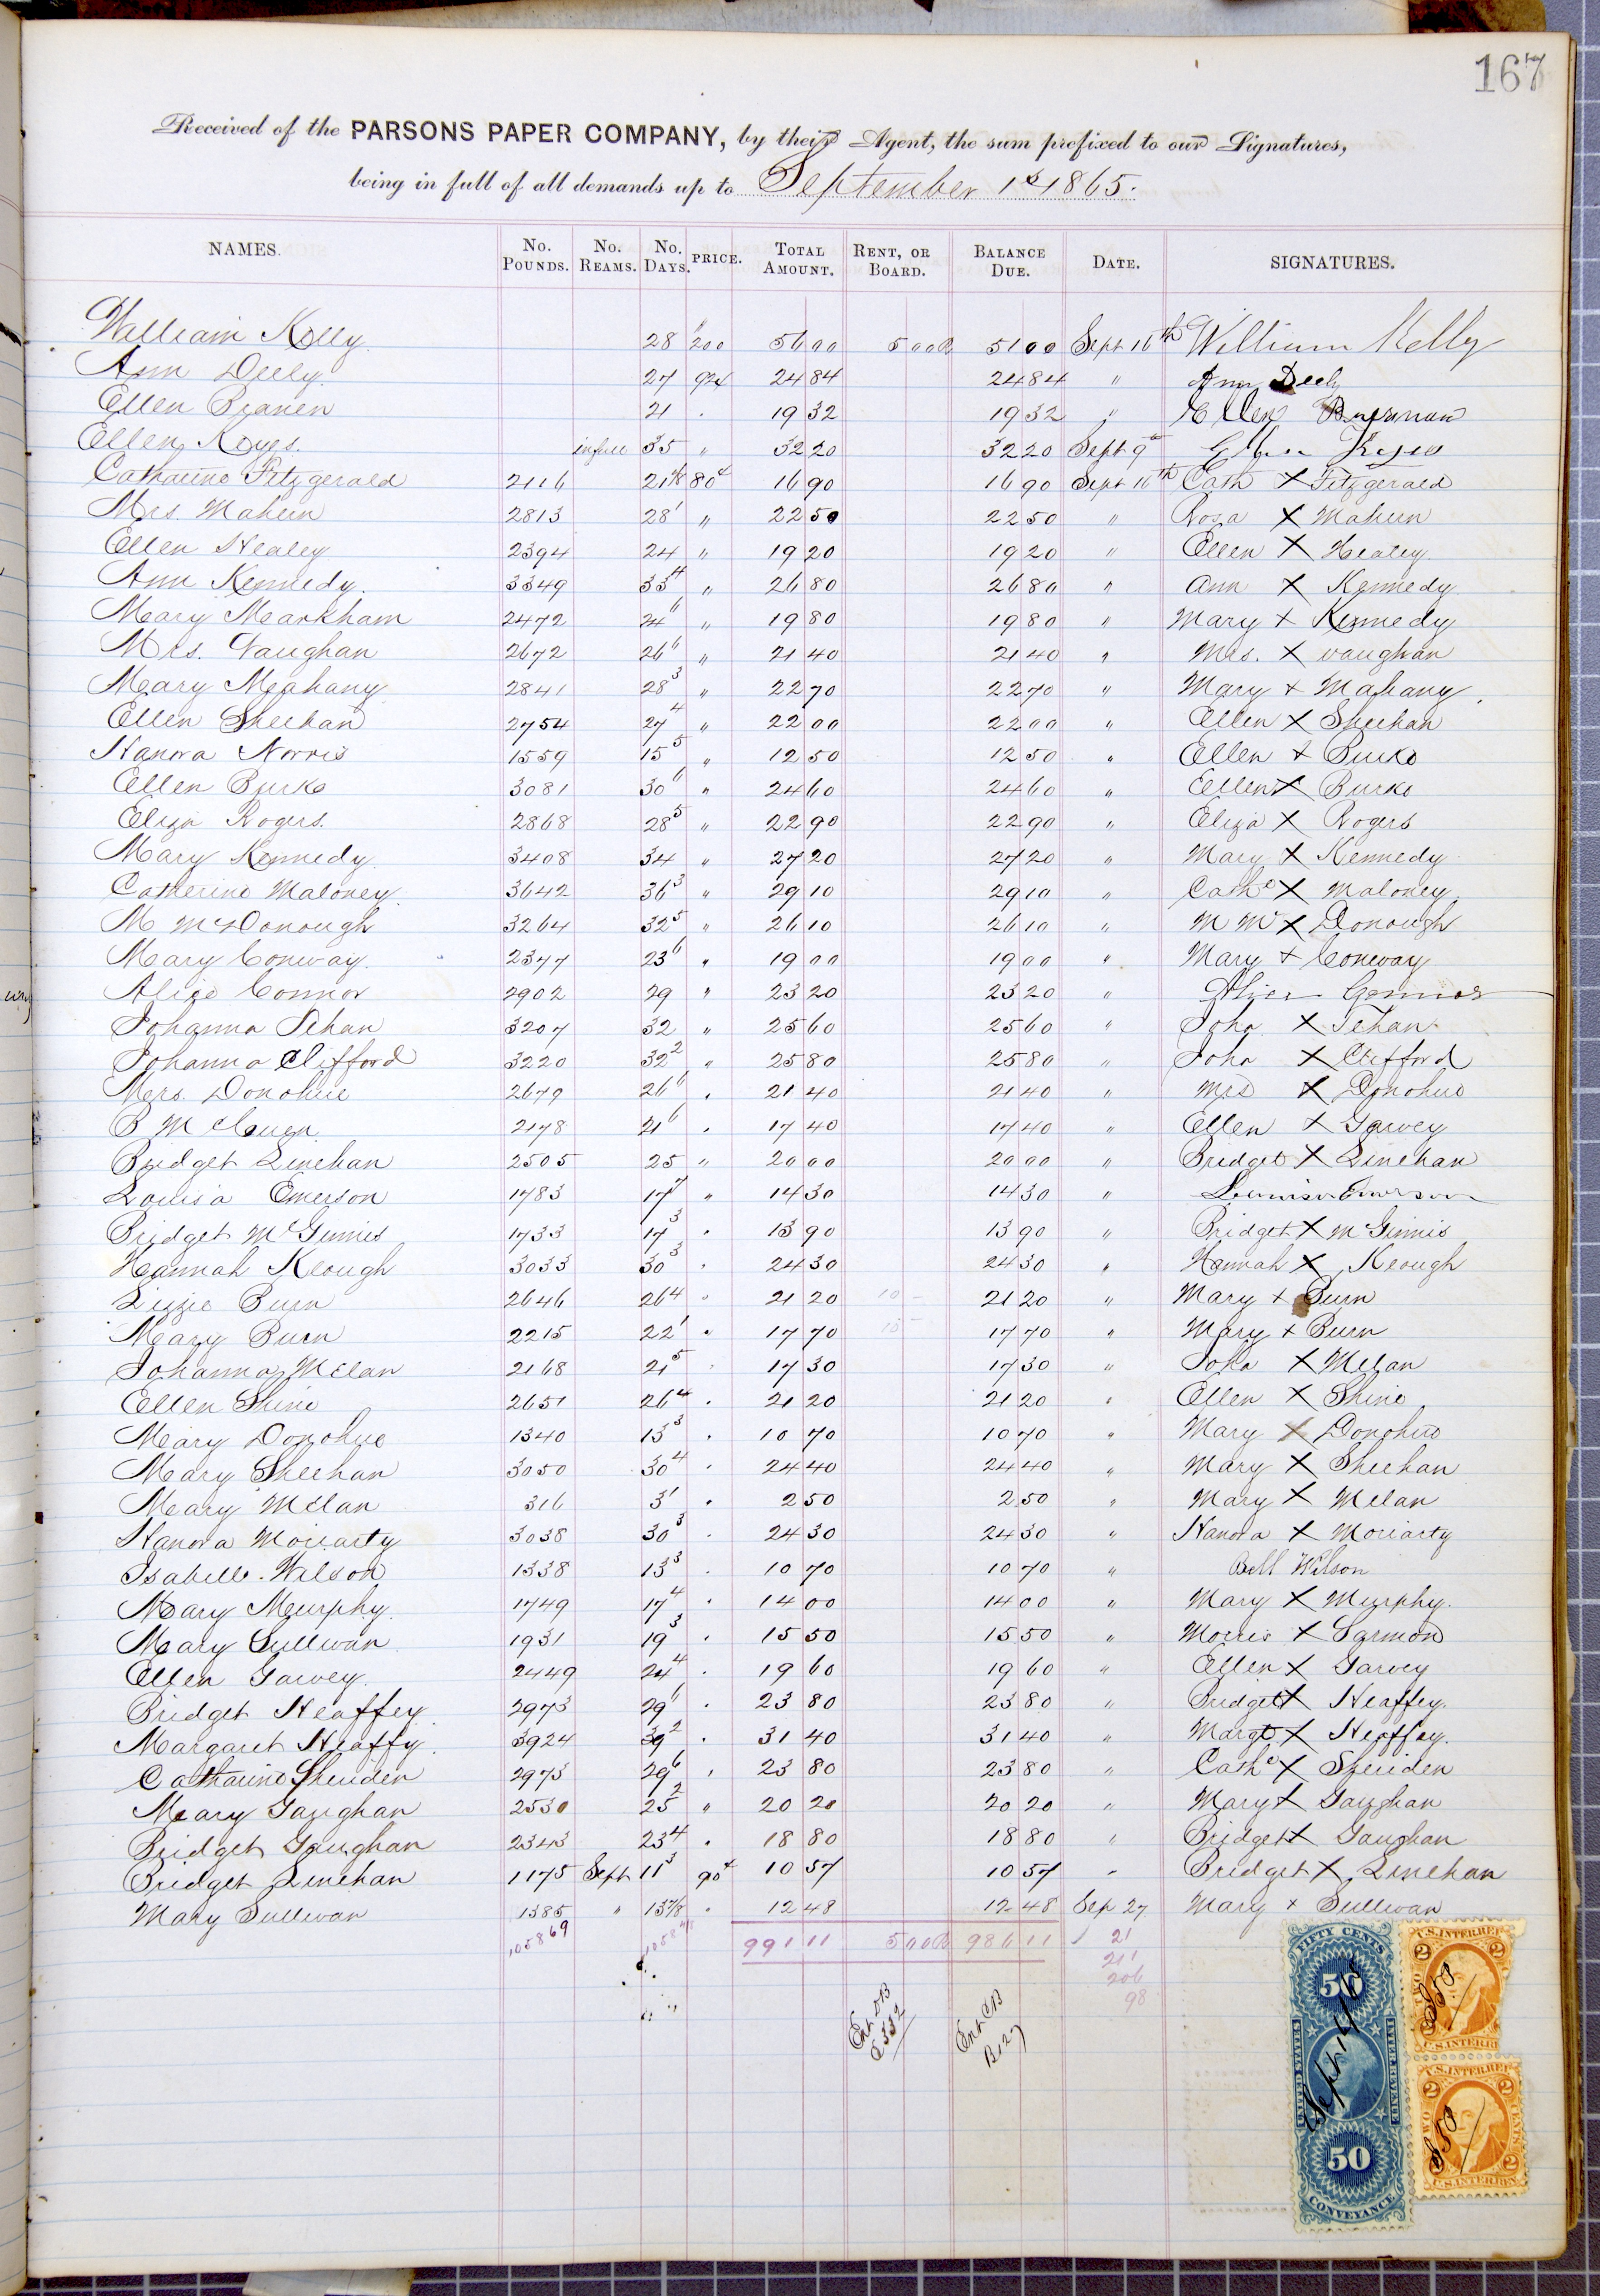 167
Received of the PARSONS PAPER COMPANY, by their Agent, the sum prefixed to our Signatures,
being in full of all demands up to September 1st 1865.
NAMES. No. POUNDS. No. REAMS. No. DAYS. PRICE. TOTAL AMOUNT. RENT, OR BOARD. BALANCE DUE. DATE. SIGNATURES.
William Kelly 28 200 56 00 5 00 B 51 00 Sept 16th William Kelly
Ann Deely 27 92 24 84 24 84 " Ann Deely
Ellen Branen 21 . 19 32 19 32 " Ellen
Ellen Keyes. in full 35 " 32 20 32 20 Sept 9th Ellen Keyes
Catharine Fitzgerald 2116 21 1/8 80 16 90 16 90 Sept 16th Cath X Fitzgerald
Mrs. Mahern 2813 28 1 " 22 50 22 50 " Rosa X Mahern
Ellen Healey 2394 24 " 19 20 19 20 " Ellen X Healey.
Ann Kennedy. 3349 33 4 " 26 80 26 80 " Ann X Kennedy
Mary Markham 2472 24 6 " 19 80 19 80 " Mary X Kennedy
Mrs. Vaughan 2672 26 6 " 21 40 21 40 " Mrs. X Vaughan
Mary Mahany 2841 28 3 " 22 70 22 70 " Mary X Mahany
Ellen Sheehan 2754 27 4 " 22 00 22 00 " Ellen X Sheehan
Hanora Norris 1559 15 5 " 12 50 12 50 " Ellen X Burke
Ellen Burke 3081 30 6 " 24 60 24 60 " Ellen X Burke
Eliza Rogers. 2868 28 5 " 22 90 22 90 " Eliza X Rogers
Mary Kennedy 3408 34 " 27 20 27 20 " Mary X Kennedy
Catherine Maloney. 3642 36 3 " 29 10 29 10 " Cathe X Maloney.
M McDonough 3264 32 5 " 26 10 26 10 " M Mc X Donough
Mary Conway. 2377 23 6 " 19 00 19 00 " Mary X Conway
Alice Connor 2902 29 " 23 20 23 20 " Alice Connor
Johanna Tehan 3207 32 " 25 60 25 60 " Joha X Tehan.
Johanna Clifford 3220 32 2 " 25 80 25 80 " Joha X Clifford
Mrs. Donohue 2679 26 6 . 21 40 21 40 " Mrs X Donohue
B 2178 21 6 . 17 40 17 40 " Ellen X Garvey
Bridget Linehan 2505 25 " 20 00 20 00 " Bridget X Linehan
Louisa Emerson 1783 17 7 " 14 30 14 30 " Louisa Emerson
Bridget McGinnis 1733 17 3 . 13 90 13 90 " Bridget X McGinnis
Hannah Keough 3033 30 3 . 24 30 24 30 " Hannah X Keough
Lizzie Burn 2646 26 4 . 21 20 10 - 21 20 " Mary X Burn
Mary Burn 2215 22 1 . 17 70 15 - 17 70 " Mary X Burn
Johanna Melan 2168 21 5 . 17 30 17 30 " Joha X Melan
Ellen Shine 2651 26 4 . 21 20 21 20 " Ellen X Shine
Mary Donohue 1340 13 3 . 10 70 10 70 " Mary X Donohue
Mary Sheehan 3050 30 4 . 24 40 24 40 " Mary X Sheehan
Mary Melan 316 3 1 . 2 50 2 50 " Mary X Melan
Hanora Moriarty 3038 30 3 . 24 30 24 30 " Hanora X Moriarty
Isabelle. Wilson 1338 13 3 . 10 70 10 70 " Bell Wilson
Mary Murphy. 1749 17 4 . 14 00 14 00 " Mary X Murphy.
Mary Sullivan 1931 19 3 . 15 50 15 50 " Morris X
Ellen Garvey. 2449 24 4 . 19 60 19 60 " Ellen X Garvey
Bridget Heaffey. 2973 29 6 . 23 80 23 80 " Bridget X Heaffey.
Margaret Heaffy. 3924 39 2 . 31 40 31 40 " Margt X Heaffey.
Catharine Sheriden 2973 29 6 . 23 80 23 80 " Cathe X Sheriden
Mary Gaughan 2530 25 2 " 20 20 20 20 " Mary X Gaughan
Bridget Gaughan 2343 23 4 . 18 80 18 80 " Bridget X Gaughan
Bridget Linehan 1175 Sept 11 3 90 10 57 10 57 " Bridget X Linehan
Mary Sullivan 1385 " 13 7/8 . 12 48 12 48 Sep 27 Mary X Sullivan
105869 991 11 5 00 B 986 11 21
211
206
98
Ent DB
C 332
Ent CB
B 127
FIFTY CENTS
50
UNITED STATES
INTER. REVENUE
Sept 1 1865
50
CONVEYANCE
U.S. INTER. REV
2 2
U.S. INTER. RE
U.S. INTER. REV
2 2
TWO CENTS
2 2
U.S. INTER. REV